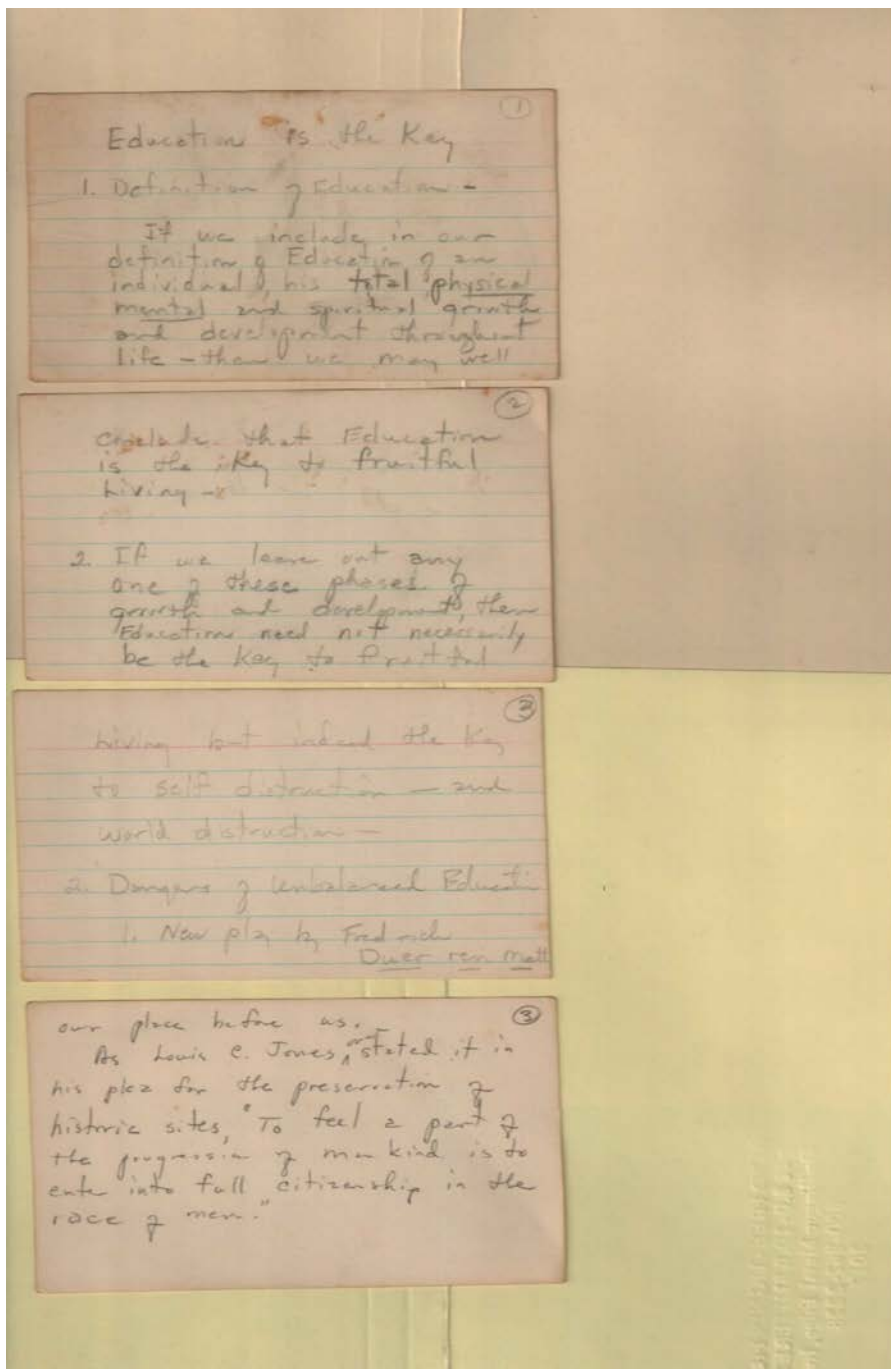 1
Education is the Key
1. Definition of Education -
If we include in our
definition of Education of an
individual, his total physical
mental and spiritual growth
and development throughout
life - then we may well
2
conclude that Education
is the Key to fruitful
Living -
2. If we leave out any
one of these phases of
growth and development, then
Education need not necessarily
be the Key to fruitful
3
Living but indeed the Key
to self distruction - and
world distruction -
2. Dangers of Unbalanced Educati
1. New play by Fredrich
Duer ren matt
3
our place before us.
As Louis C. Jones, stated it in
his plea for the preservation of
historic sites, "To feel a part of
the progression of man kind is to
enter into full citizenship in the
race of men."